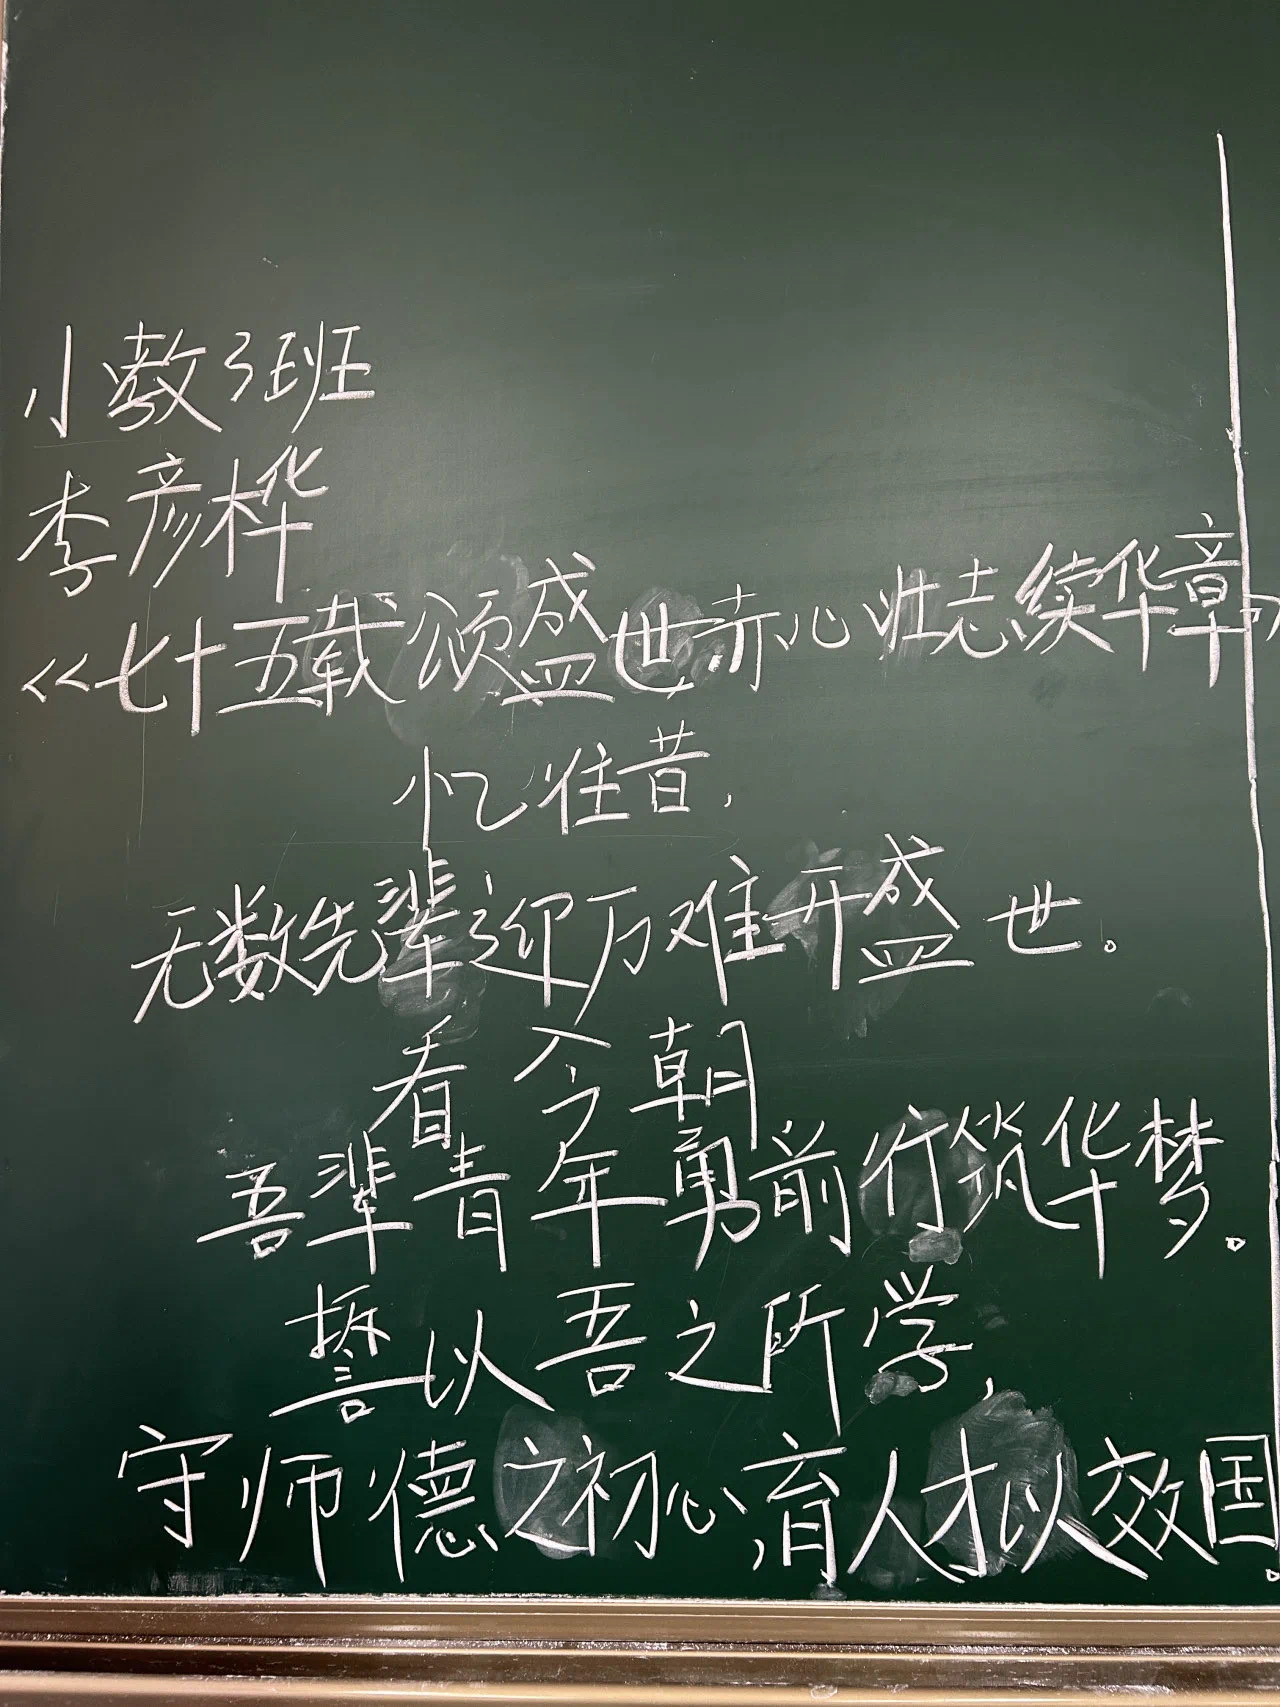 小教3班
李彦桦
《七十五载颂盛世赤心壮志续华章》
忆往昔，
无数先辈迎万难开盛世。
看今朝
吾辈青年勇前行筑华梦。
誓以吾之所学，
守师德之初心，育人才以效国。